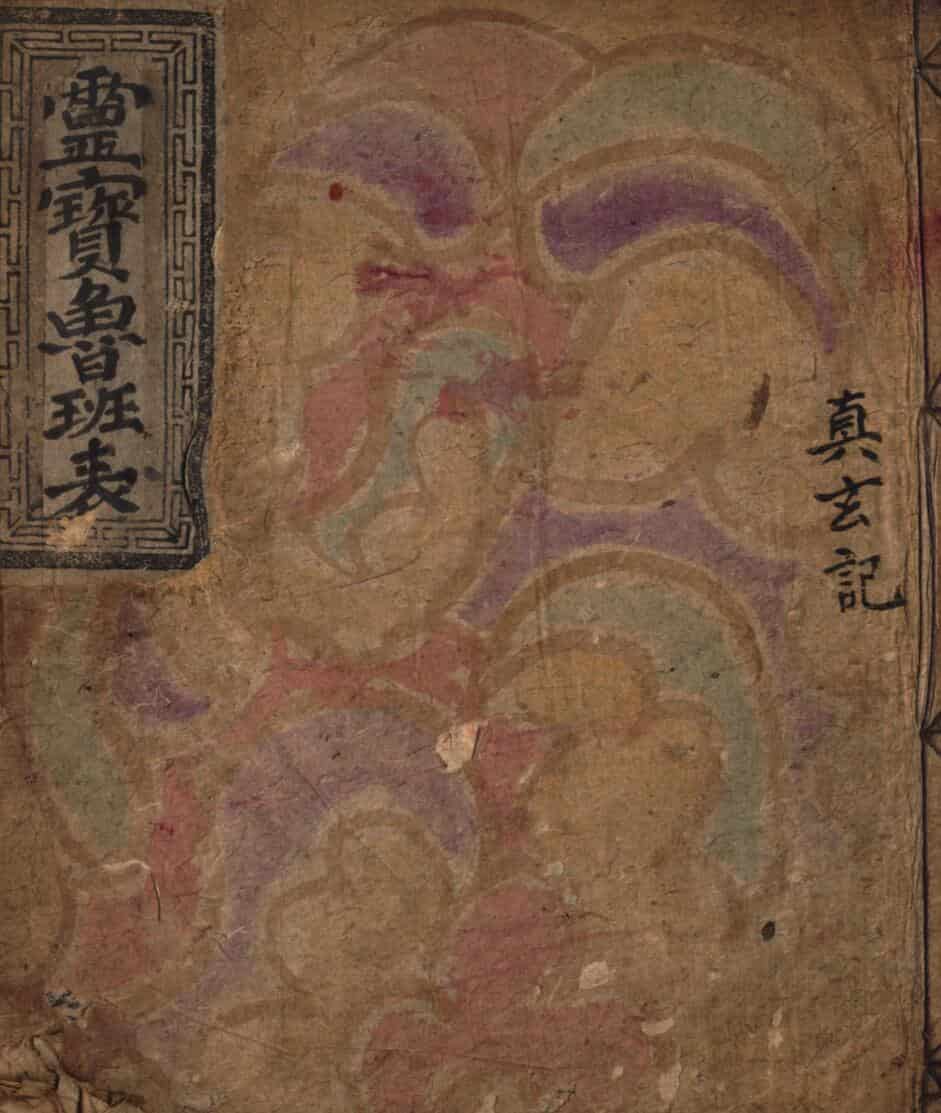 靈寶魯班表
真玄記